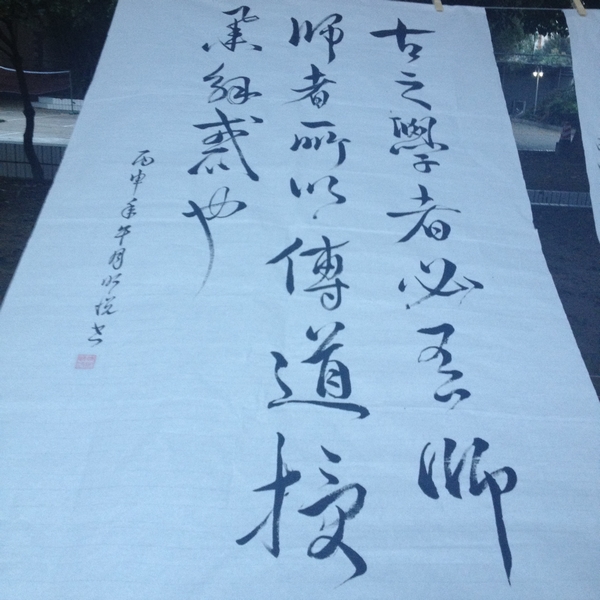 古之學者必有师
师者所以傳道授
業解惑也
丙申年午月